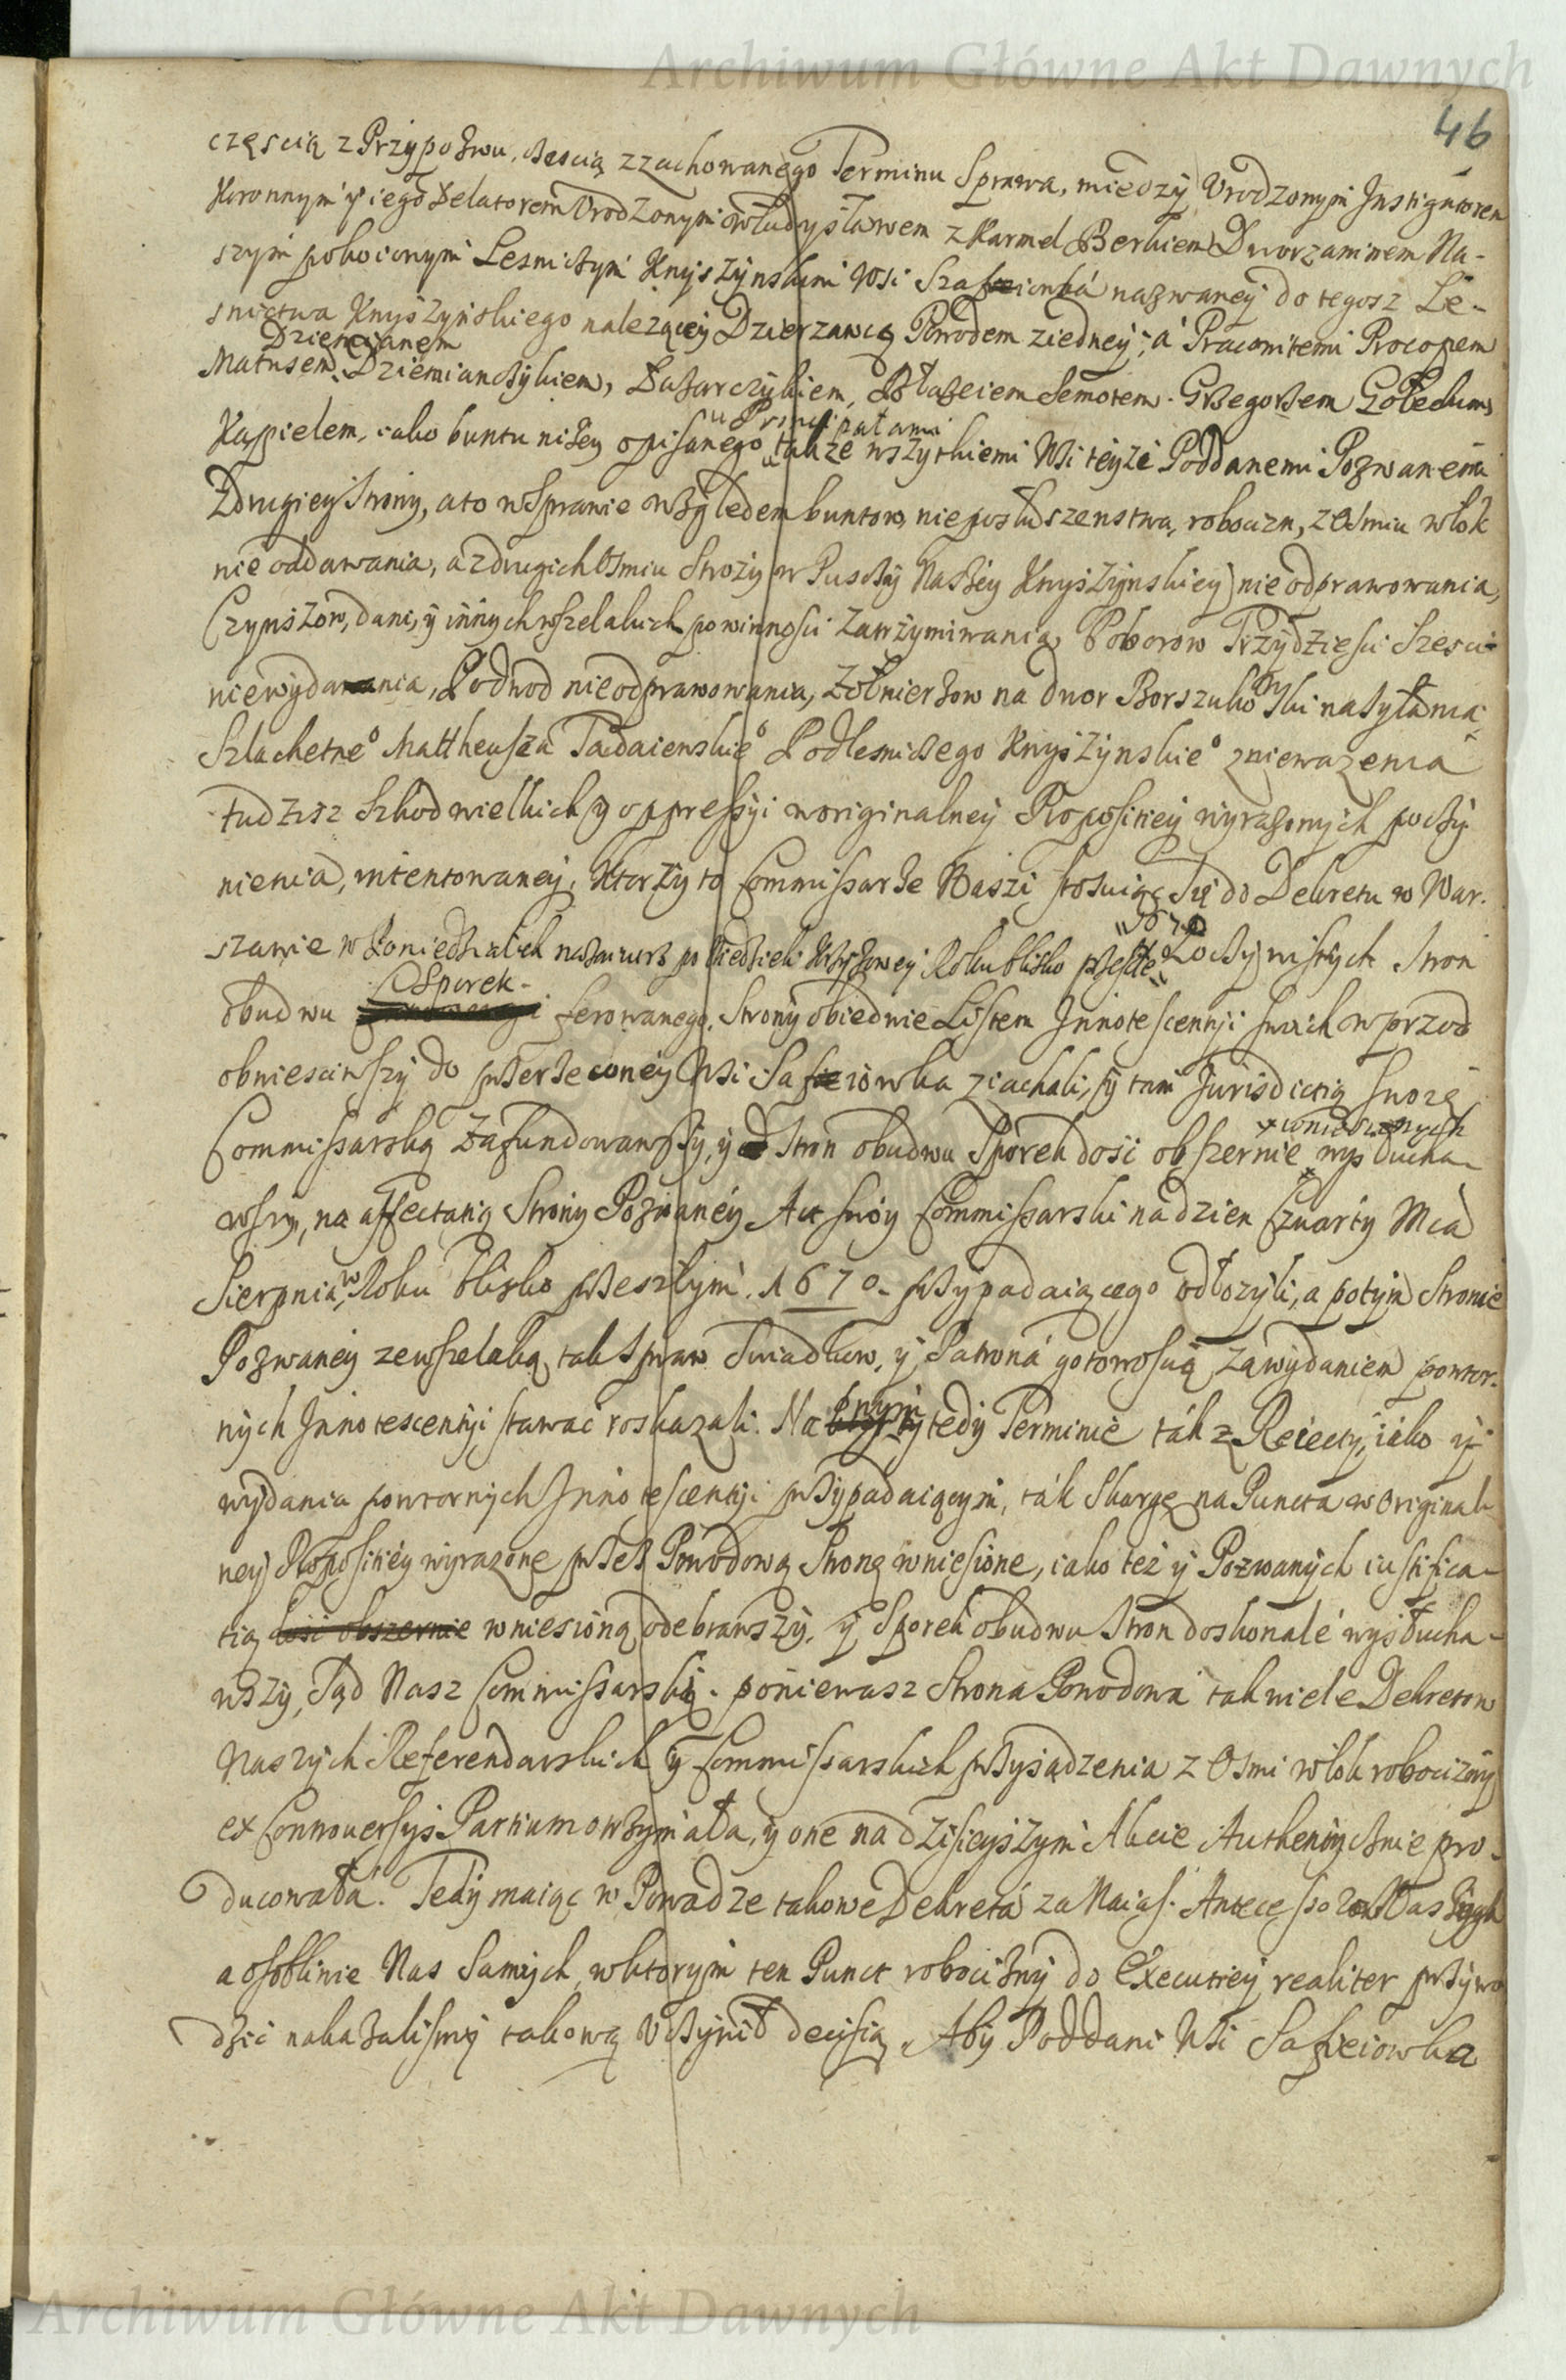 Archiwum Główne Akt Dawnych
46
częscią z Przypozwu, częscią z zachowanego Terminu Sprawa, między Vrodzonym Instigatorem
Koronnym y iego Delatorem Vrodzonym Władysławem z Karmel Berkiem Dworzaninem Na-
szym pokoiowym Lesniczym Knyszynskim Wsi Szafiowka nazwaney do tegosz Le-
snictwa Knyszynskiego należącey Dzierzawcą Powodem z iedney; a Pracowitemi Procopem
Dziemianem
Matusem, Dziemianczykiem, Łazarczykiem, Błazeiem Semotem. Grzegorzem Goledum
Kapielem, iako buntu niżey opisanego Principałami także wszytkiemi Wsi teyże Poddanemi Pozwanemi
Z drugiey Strony, a to w Sprawie względem buntow, nieposłuszenstwa, robocizn, z Osmiu włok
nie oddawania, a z drugich Osmiu Stroży w Puszczy Naszey Knyszynskiey nie odprawowania,
Czynszow, dani, y innych wszelakich powinności zatrzymiwania, Poborow Trzydziesci Szesci
niewydania, Podwod nieodprawowania, Żołnierzow na dwor Borszukowski nasyłania,
Szlachetne° Mattheusza Podlesniczego Knyszynskie° znieważenia
tudziesz Szkod wielkich y oppressyi w originalney Propositiey wyrażonych poczy-
nienia, intentowaney. Ktorzy to Commissarze Naszi stosuiąc się do Dekretu w War-
szawie w Poniedziałek nazaiutrz po Niedzieli Roku blisko przeszłe° 1670 Oczywistych Stron
obudwu Sporek ferowanego, Strony obiedwie Listem Innotescentyi swoich wprzod
obwiesciwszy do przerzeconey Wsi Safiowka ziachali, y tam Jurisdictią swoię
Commissarską Zafundowawszy, y Stron obudwu Sporek dosi obszernie wniesionych wysłucha-
wszy, na affectatią Strony Pozwaney Act swoy Commissarski na dzien Czwarty Mca
Sierpnia, w Roku blisko przeszłym. 1670. przypadaiącego odłożyli, a potym Stronie
Pozwaney ze wszelaką tak Spraw Swiadkow, y Patrona gotowością za wydaniem powtor-
nych Innotescentyi stawać roskazali. Na tedy Terminie ták z Reiecty, iako y
wydania powtornych Innotescentyi przypadaiącym, ták Skargę na Puncta w Original-
ney Propositiey wyrażone przez Powodową Stronę wniesione, iako też y Pozwanych iustifica-
tią dosi obszernie wniesioną odebrawszy, y Sporek obudwu Stron doskonale wysłucha-
wszy, Sąd Nasz Commissarski. ponieważ Strona Powodowa tak wiele Dekretow
Naszych Referendarskich y Commissarskich przysądzenia z Osmi włok robocizny
ex Controversys Partium otrzymała, y one na dzisieyszym Akcie Authentycznie pro-
ducowała. Tedy maiąc w Powadze takowe Dekreta za Naias. Antecessorow Naszych
a osobliwie Nas Samych, w ktorym ten Punct robocizny do Executiey realiter przywo-
dzić nakazalismy takową Vczynił decisią. Aby Poddani Wsi Safieiowka
Archiwum Główne Akt Dawnych